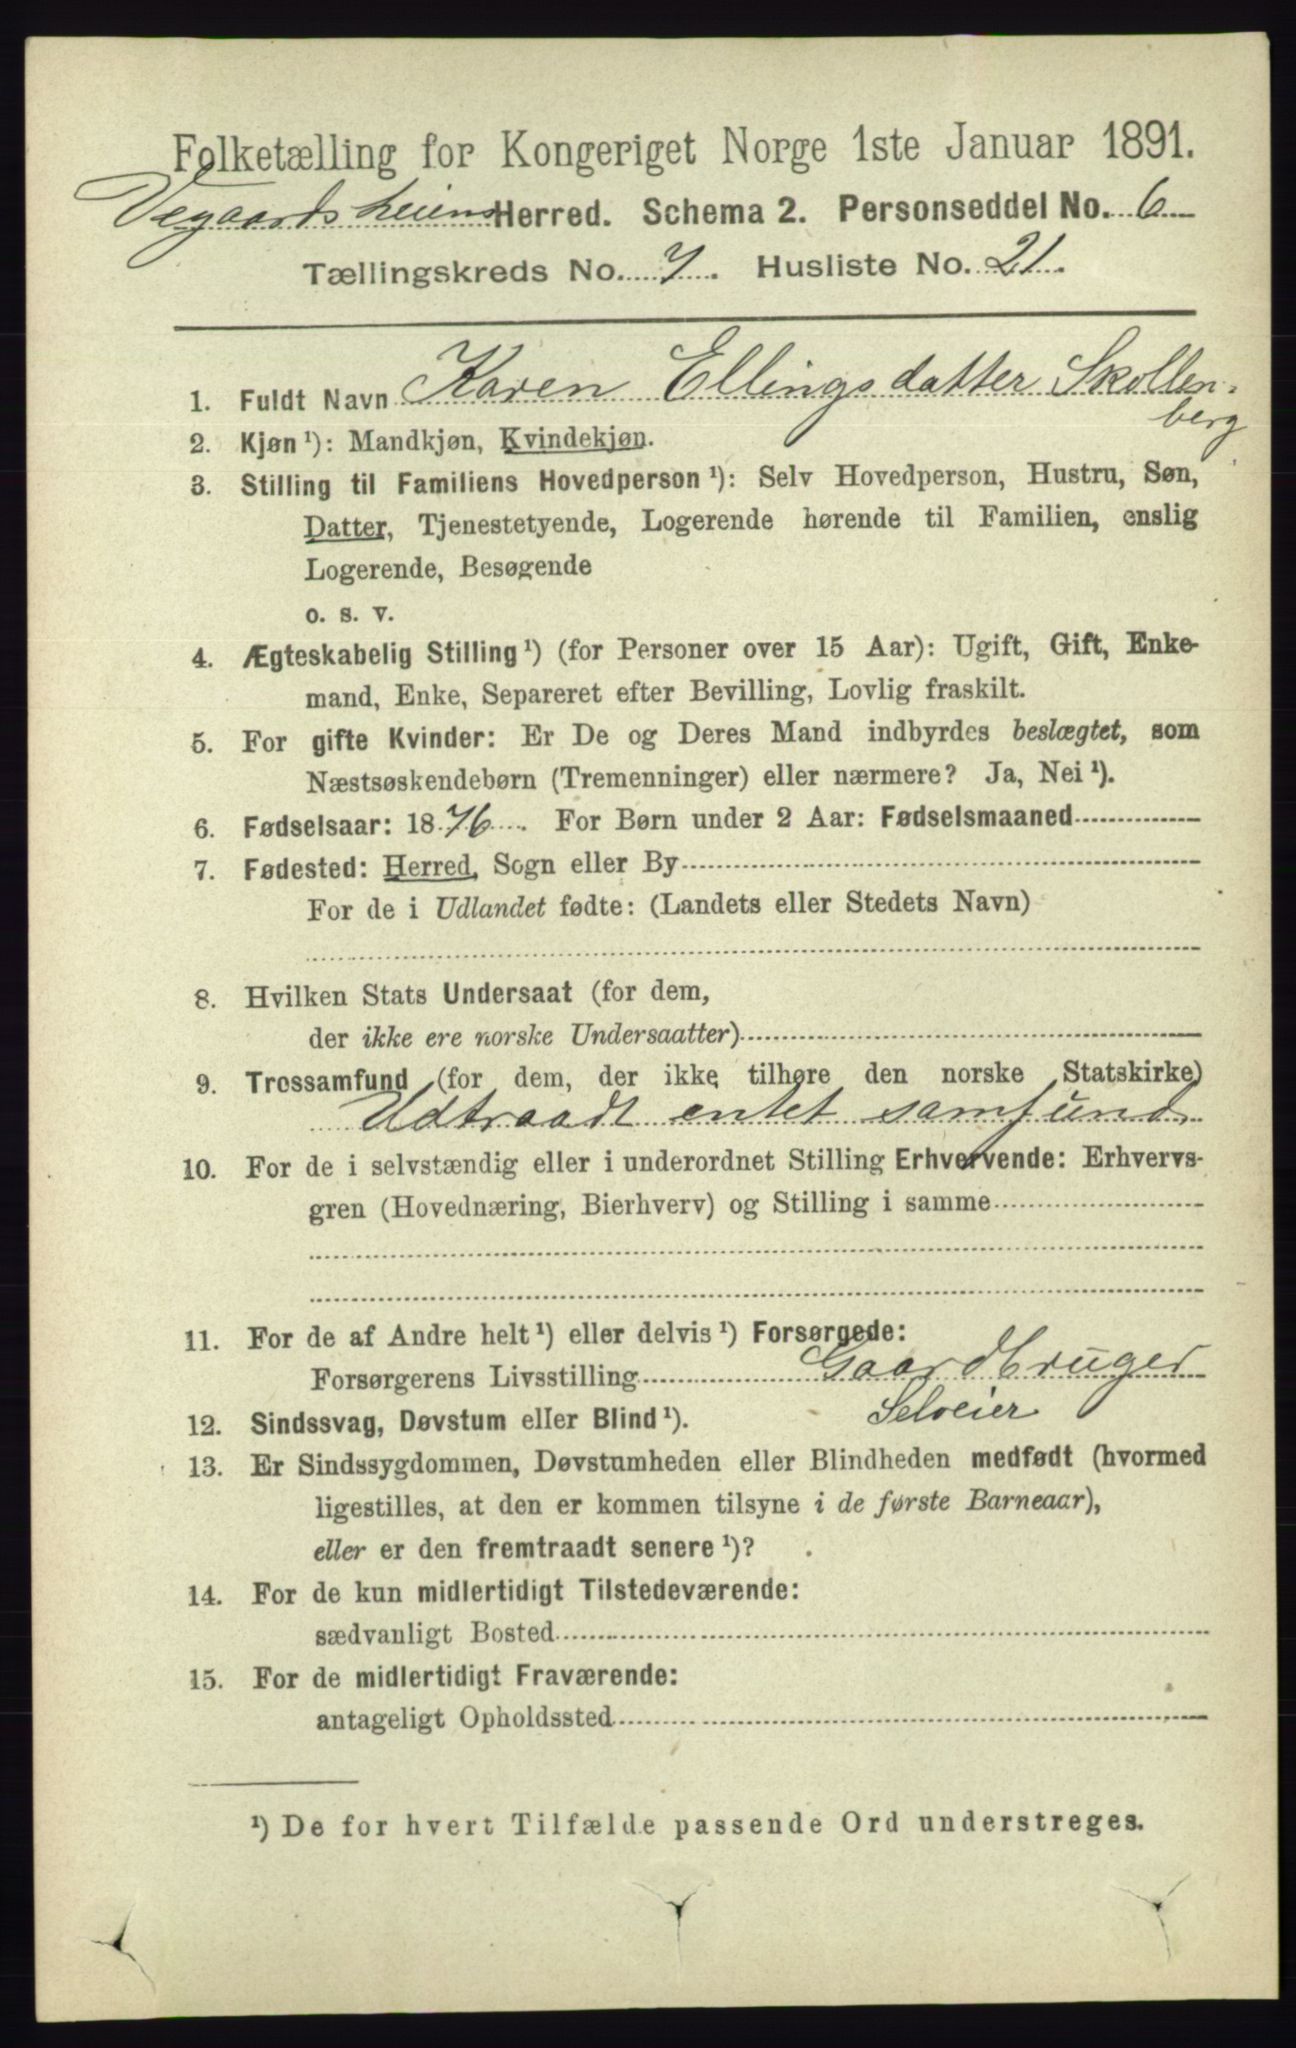 Folketælling for Kongeriget Norge 1ste Januar 1891.
Vegaardsheiens Herred. Schema 2. Personseddel No. 6
Tællingskreds No. 7. Husliste No. 21.
1. Fuldt Navn Karen Ellingsdatter Skollen-
berg
2. Kjøn ¹): Mandkjøn, Kvindekjøn.
3. Stilling til Familiens Hovedperson ¹): Selv Hovedperson, Hustru, Søn,
Datter, Tjenestetyende, Logerende hørende til Familien, enslig
Logerende, Besøgende
o. s. v.
4. Ægteskabelig Stilling ¹) (for Personer over 15 Aar): Ugift, Gift, Enke-
mand, Enke, Separeret efter Bevilling, Lovlig fraskilt.
5. For gifte Kvinder: Er De og Deres Mand indbyrdes beslægtet, som
Næstsøskendebørn (Tremenninger) eller nærmere? Ja, Nei ¹).
6. Fødselsaar: 1876. For Børn under 2 Aar: Fødselsmaaned
7. Fødested: Herred, Sogn eller By
For de i Udlandet fødte: (Landets eller Stedets Navn)
8. Hvilken Stats Undersaat (for dem,
der ikke ere norske Undersaatter)
9. Trossamfund (for dem, der ikke tilhøre den norske Statskirke)
Udtraadt entet samfund
10. For de i selvstændig eller i underordnet Stilling Erhvervende: Erhvervs-
gren (Hovednæring, Bierhverv) og Stilling i samme
11. For de af Andre helt ¹) eller delvis ¹) Forsørgede:
Forsørgerens Livsstilling Gaardbruger
Selveier
12. Sindssvag, Døvstum eller Blind ¹).
13. Er Sindssygdommen, Døvstumheden eller Blindheden medfødt (hvormed
ligestilles, at den er kommen tilsyne i de første Barneaar),
eller er den fremtraadt senere ¹)?
14. For de kun midlertidigt Tilstedeværende:
sædvanligt Bosted
15. For de midlertidigt Fraværende:
antageligt Opholdssted
¹) De for hvert Tilfælde passende Ord understreges.